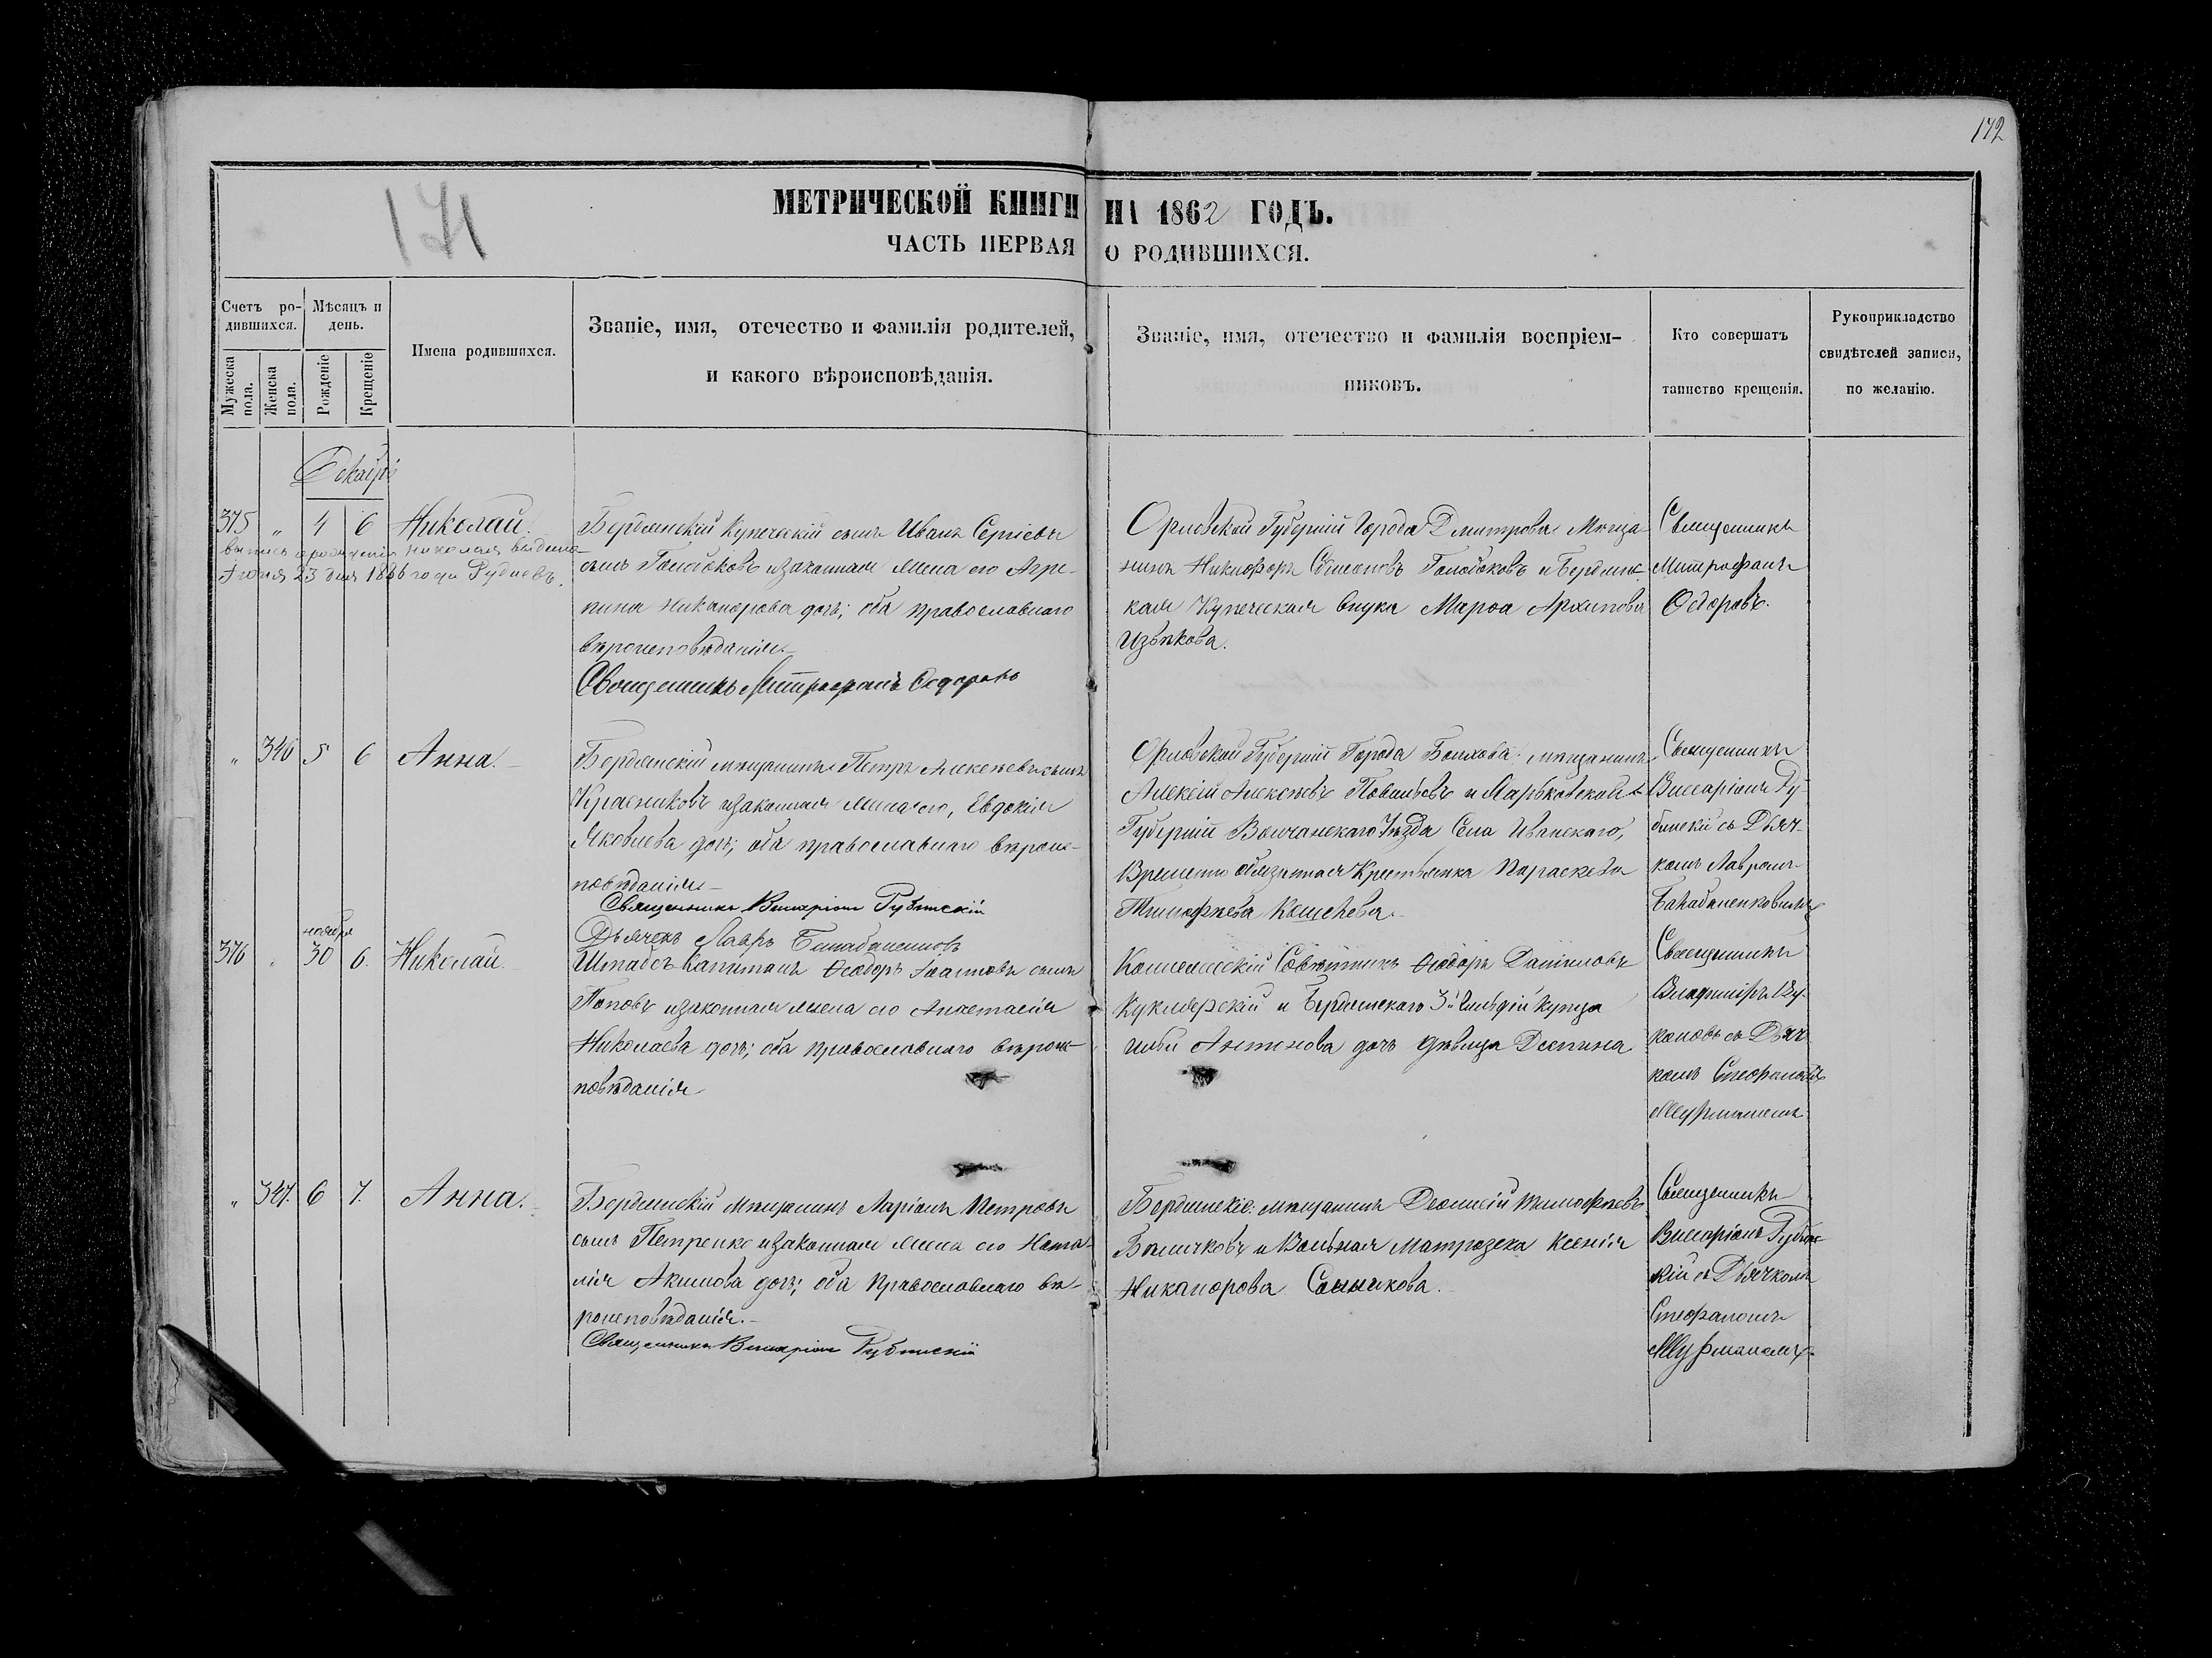 172
171
МЕТРИЧЕСКОЙ КНИГИ НА 1862 ГОДЪ.
ЧАСТЬ ПЕРВАЯ О РОДИВШИХСЯ.
Счетъ ро-
дившихся.
Мужеска пола.
Женска пола.
Мѣсяцъ и
день.
Рожденіе
Крещеніе
Имена родившихся.
Званіе, имя, отечество и фамилія родителей,
и какого вѣроисповѣданія.
Званіе, имя, отечество и фамилія воспріем-
никовъ.
Кто совершатъ
таинство крещенія.
Рукоприкладство
свидѣтелей записи,
по желанію.
Декабрь
375 " 4 6 Николай.
Николая выдана
23 дня 1886 года
Бердянскій Купеческій сынъ Иванъ Сергіевъ
сынъ и законная жена его Агре-
пина Никанорова дочь; оба православнаго
вѣроисповѣданія.
Священникъ Митрофанъ Ѳедоровъ
Орловской Губерніи Города Дмитрова Мѣща-
нинъ Никифоръ Симеоновъ и Бердянс-
кая Купеческая внука Марѳа Архипова
Извѣкова.
Священникъ
Митрофанъ
Ѳедоровъ.
" 346 5 6 Анна.
Бердянскій мѣщанинъ Петръ Алексѣевъ сынъ
Красниковъ и законная жена его, Евдокія
Яковлева дочь; оба православнаго вѣроис-
повѣданія
Священникъ Виссаріонъ Рубинскій
Дьячекъ Лавръ
Орловской Губерніи Города Болхова: мѣщанинъ
Алексій Алексѣевъ и Харьковской
Губерніи Волчанскаго Уѣзда Села Иванскаго,
Временно обязанная Крестьянка Параскева
Тимофѣева
Священникъ
Виссаріонъ Ру-
бинскій съ Дьяч-
комъ Лавромъ
376 " ноября 30 6. Николай
Штабсъ-Капитанъ Ѳеодоръ Іоанновъ сынъ
Поповъ и законная жена его Анастасія
Николаева дочь; оба православнаго вѣроис-
повѣданія
Коллежскій Совѣтникъ Ѳеодоръ Даниловъ
и Бердянскаго 3й Гильдіи Купца
Антонова дочь дѣвица Деспина
Священникъ
Владиміръ
съ Дьяч-
комъ Стефаномъ
" 347. 6 7. Анна.
Бердянскій мѣщанинъ Ларіонъ Петровъ
сынъ Петренко и законная жена его Ната-
лія Акимова дочь; оба Православнаго вѣ-
роисповѣданія.
Священникъ Виссаріонъ Рубинскій
Бердянскіе: мѣщанинъ Діонисій Тимофѣевъ
и Вольная Матрозска Ксенія
Никанорова Санникова.
Священникъ
Виссаріонъ Рубинс-
кій съ Дьячкомъ
Стефаномъ